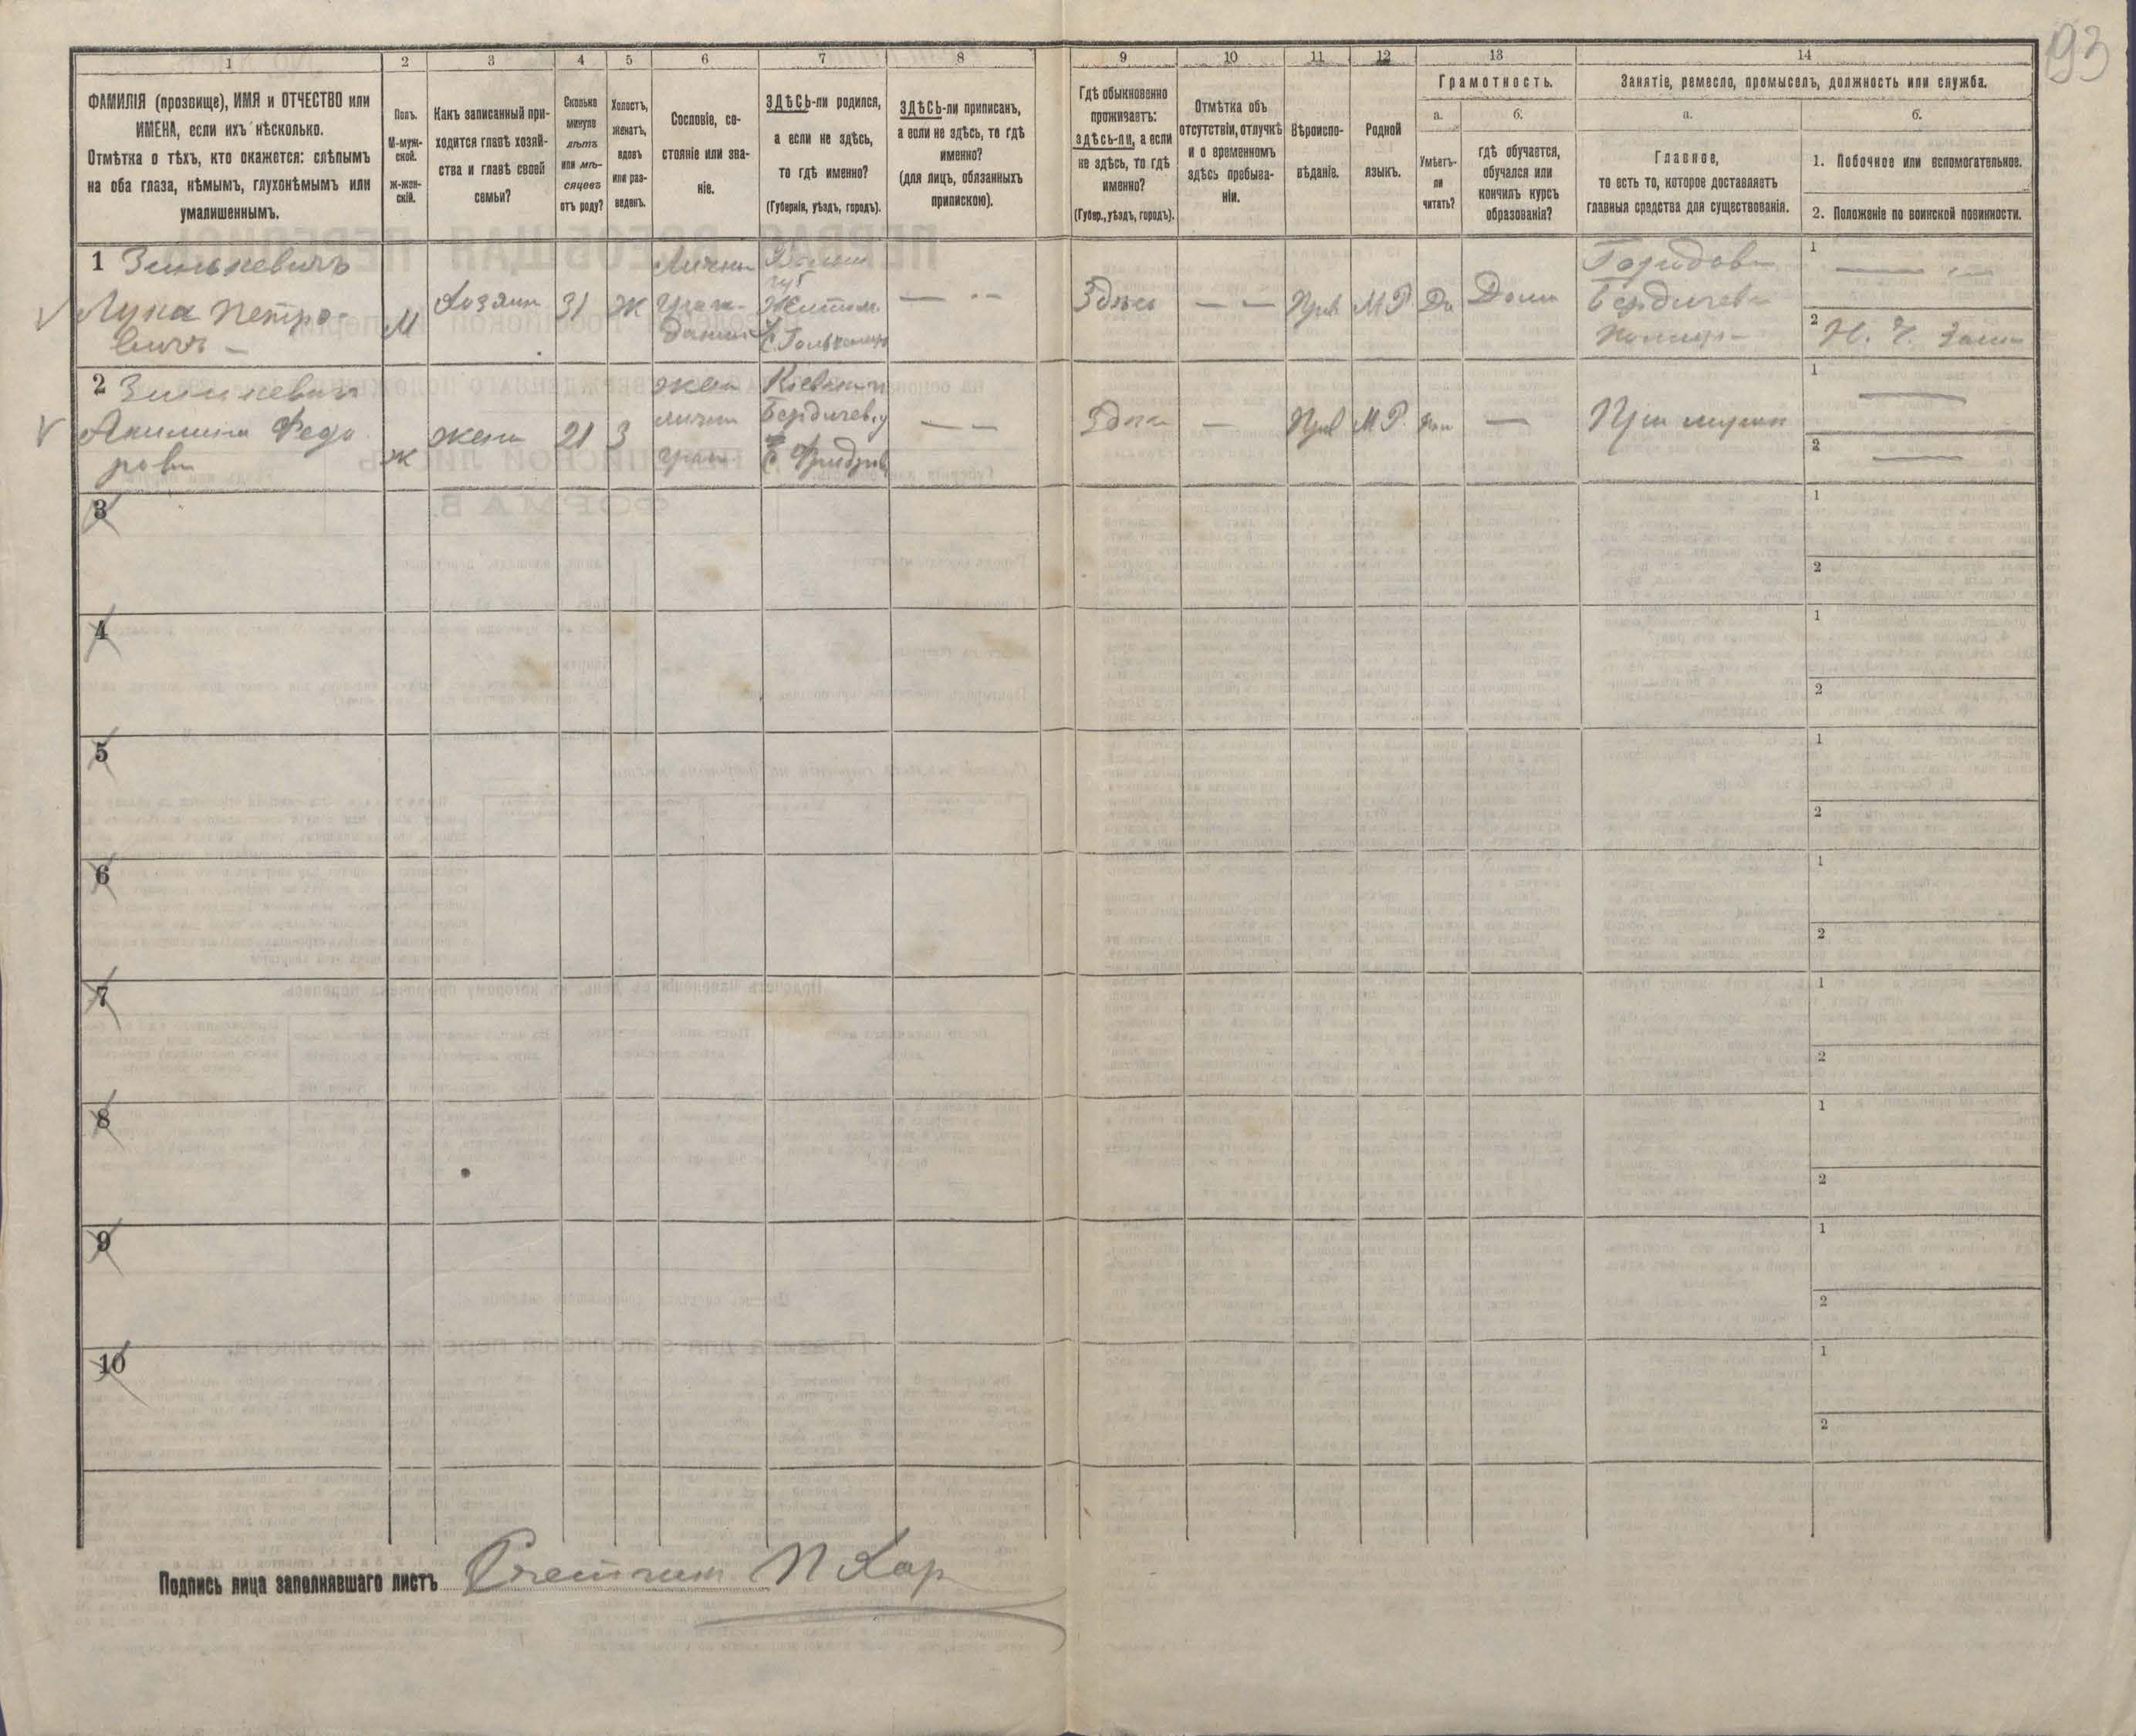 193
1
2
3
4
5
6
7
8
9
10
11
12
13
14
ФАМИЛІЯ (прозвище), ИМЯ и ОТЧЕСТВО или
ИМЕНА, если ихъ нѣсколько.
Отмѣтка о тѣхъ, кто окажется: слѣпымъ
на оба глаза, нѣмымъ, глухонѣмымъ или
умалишеннымъ.
Полъ.
М-муж-
ской.
Ж-жен-
скій.
Какъ записанный при-
ходится главѣ хозяй-
ства и главѣ своей
семьи?
Сколько
минуло
лѣтъ
или мѣ-
сяцевъ
отъ роду?
Холостъ,
женатъ,
вдовъ
или раз-
веденъ.
Сословіе, со-
стояніе или зва-
ніе.
ЗДѢСЬ-ли родился,
а если не здѣсь,
то гдѣ именно?
(Губернія, уѣздъ, городъ).
ЗДѢСЬ-ли приписанъ,
а если не здѣсь, то гдѣ
именно?
(для лицъ, обязанныхъ
припискою).
Гдѣ обыкновенно
проживаетъ:
здѣсь-ли, а если
не здѣсь, то гдѣ
именно?
(Губер., уѣздъ, городъ).
Отмѣтка объ
отсутствіи, отлучкѣ
и о временномъ
здѣсь пребыва-
ніи.
Вѣроиспо-
вѣданіе.
Родной
языкъ.
Грамотность.
а.
Умѣетъ-
ли
читать?
б.
гдѣ обучается,
обучался или
кончилъ курсъ
образованія?
Занятіе, ремесло, промыселъ, должность или служба.
а.
Главное,
то есть то, которое доставляетъ
главныя средства для существованія.
б.
1. Побочное или вспомогательное.
2. Положеніе по воинской повинности.
1 Зинькевичъ
Лука Петро-
вичъ
М
Хозяин
31
Ж
Личн
граж-
данин
губ
Житом.
Здѣсь
Прав
М Р.
Да
Дома
Городов
Бердичев
Полиции
1
2 Н. Ч. Запа
2 Зинькевич
Акилина Федо
ровн
ж
жена
21
З
жена
личн
граж.
Кіевск
Бердичев. у
Здѣс
Прав
М Р.
При мужѣ
1
2
3
1
2
4
1
2
5
1
2
6
1
2
7
1
2
8
1
2
9
1
2
10
1
2
Подпись лица заполнявшаго листъ Счетчик П Хар